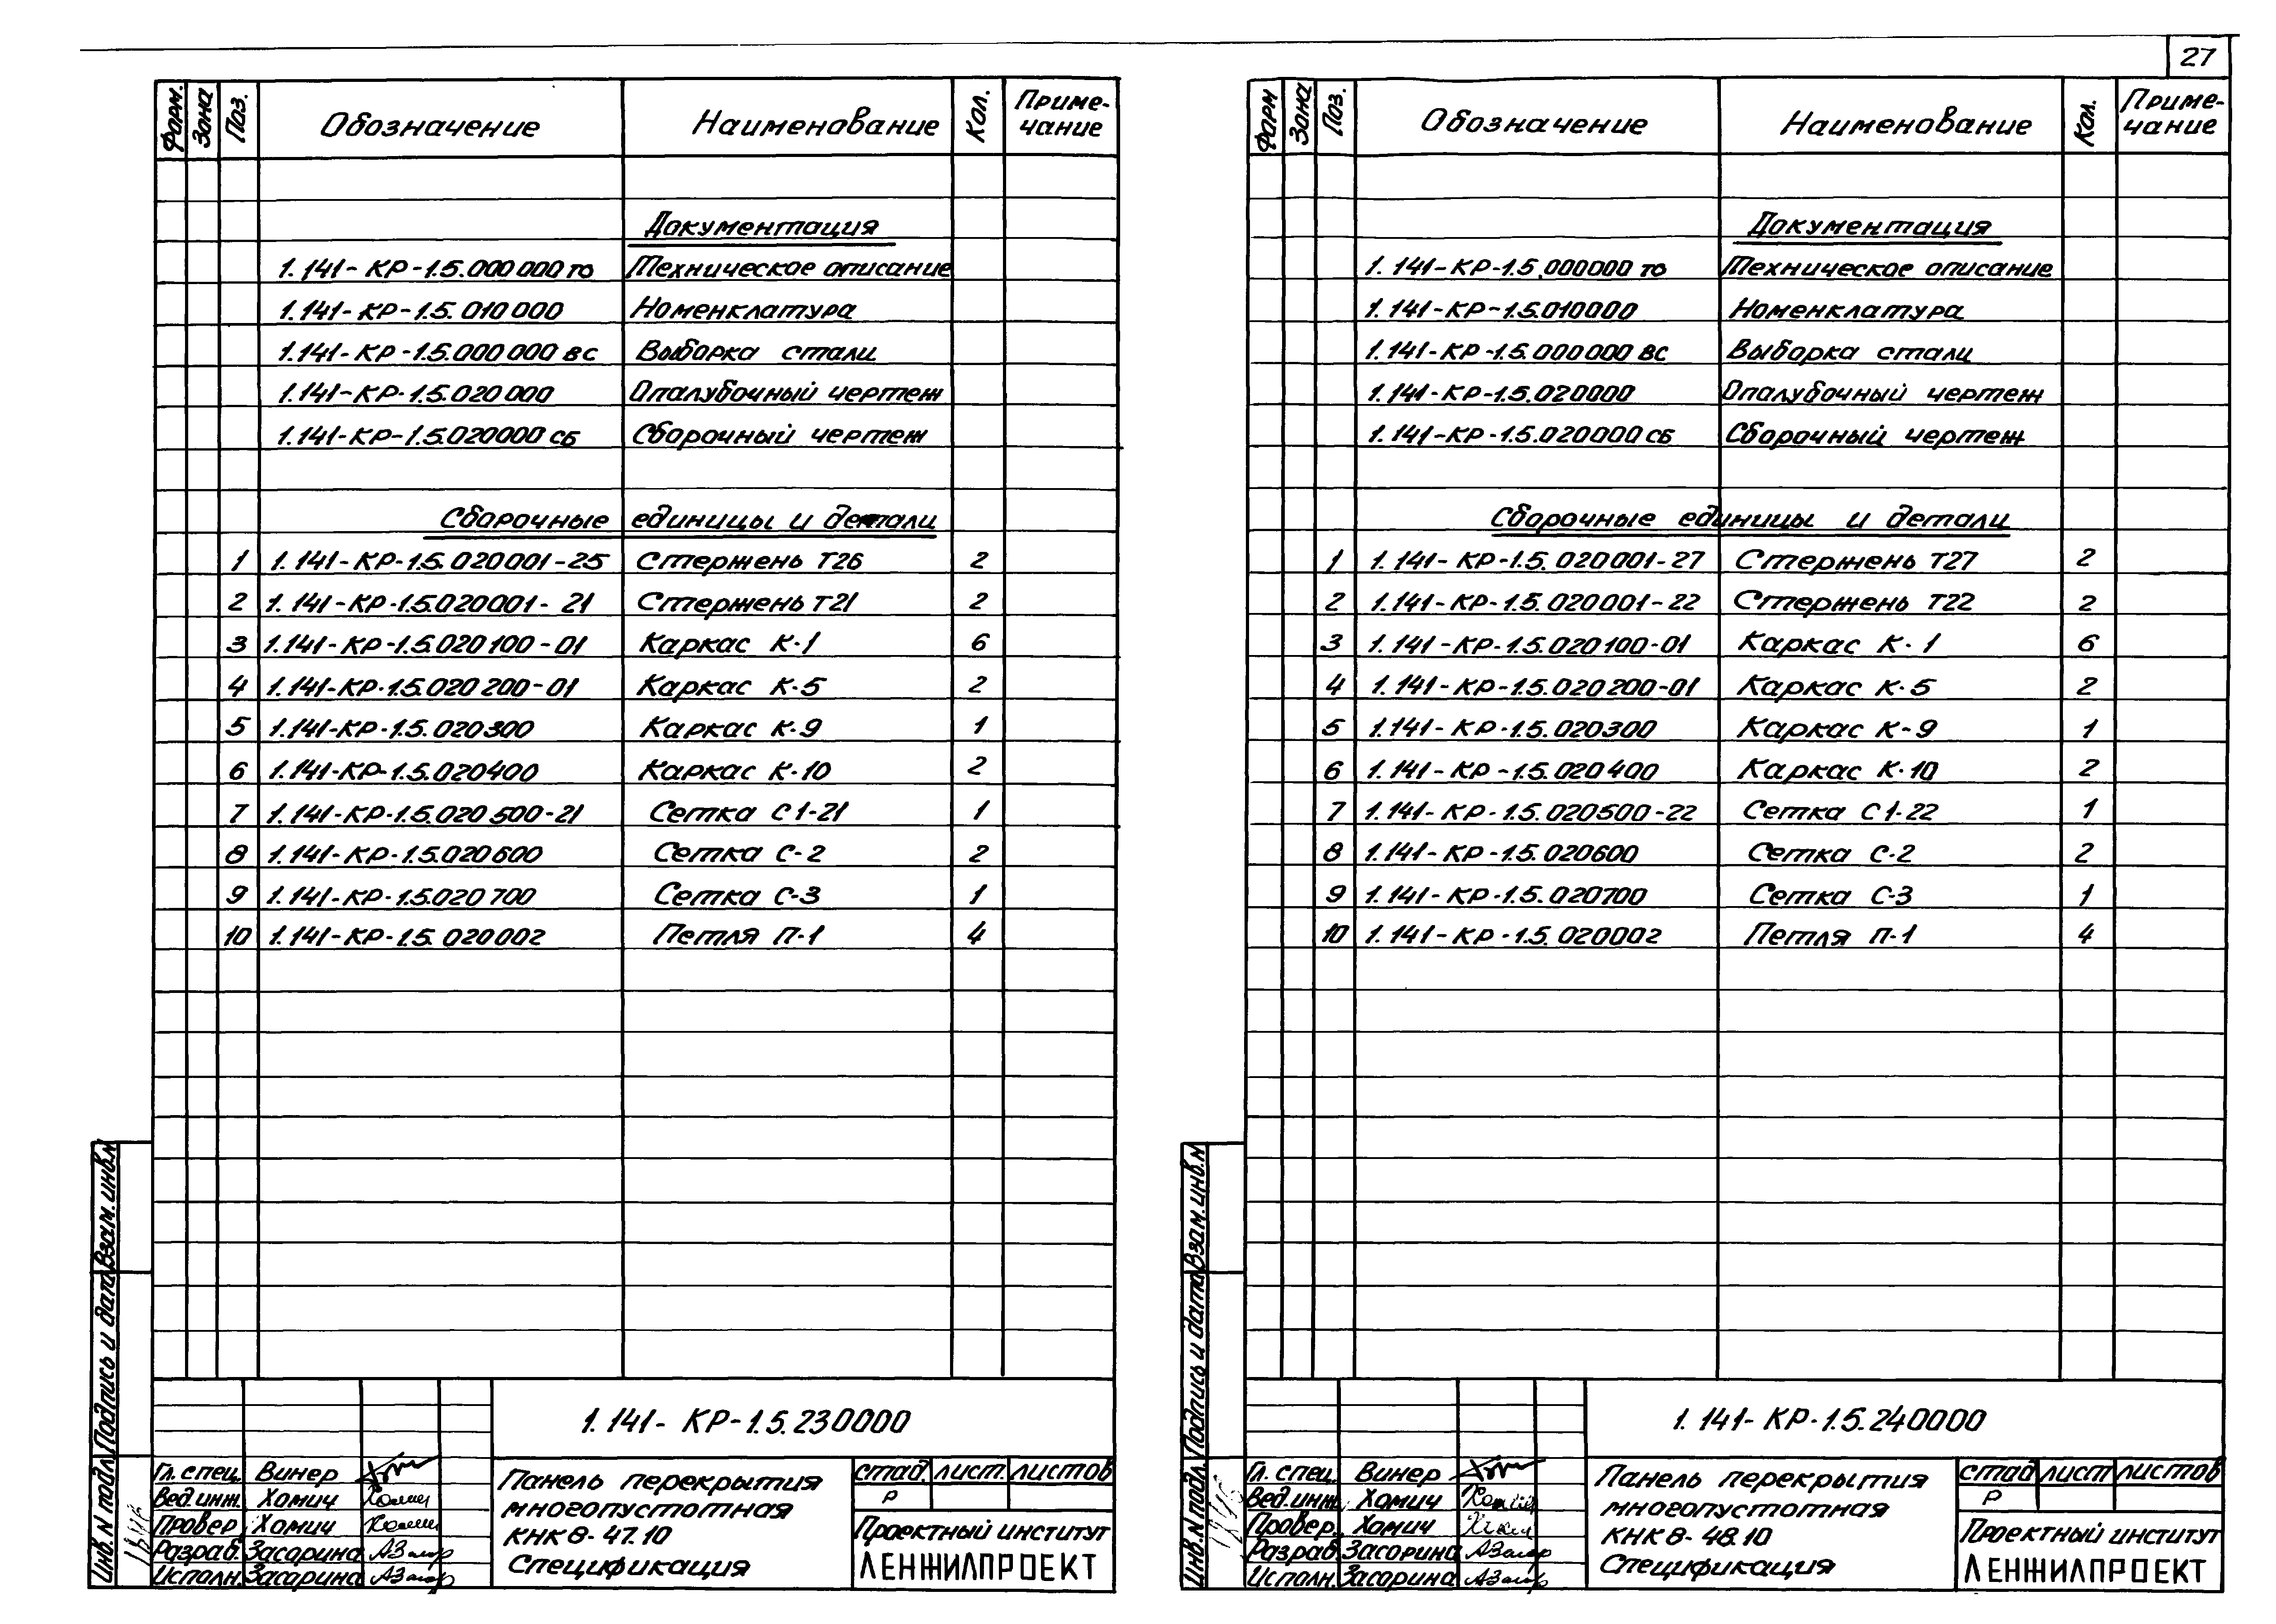 27
Форм. Зона Поз. Обозначение Наименование Кол. Приме-
чание
Документация
1.141-КР-1.5.000000ТО Техническое описание
1.141-КР-1.5.010000 Номенклатура
1.141-КР-1.5.000000ВС Выборка стали
1.141-КР-1.5.020000 Опалубочный чертеж
1.141-КР-1.5.020000СБ Сборочный чертеж
Сборочные единицы и детали
1 1.141-КР-1.5.020001-25 Стержень Т26 2
2 1.141-КР-1.5.020001-21 Стержень Т21 2
3 1.141-КР-1.5.020100-01 Каркас К-1 6
4 1.141-КР-1.5.020200-01 Каркас К-5 2
5 1.141-КР-1.5.020300 Каркас К-9 1
6 1.141-КР-1.5.020400 Каркас К-10 2
7 1.141-КР-1.5.020500-21 Сетка С1-21 1
8 1.141-КР-1.5.020600 Сетка С-2 2
9 1.141-КР-1.5.020700 Сетка С-3 1
10 1.141-КР-1.5.020002 Петля П-1 4
Инв.N подл. Подпись и дата Взам.инв.N
1.141-КР-1.5.230000
Гл. спец. Винер
Вед.инж. Хомич
Провер. Хомич
Разраб. Засорина
Исполн. Засорина
Панель перекрытия
многопустотная
КНК8-47.10
Спецификация
стад. лист листов
Р
Проектный институт
ЛЕНЖИЛПРОЕКТ
Форм Зона Поз. Обозначение Наименование Кол. Приме-
чание
Документация
1.141-КР-1.5.000000ТО Техническое описание
1.141-КР-1.5.010000 Номенклатура
1.141-КР-1.5.000000ВС Выборка стали
1.141-КР-1.5.020000 Опалубочный чертеж
1.141-КР-1.5.020000СБ Сборочный чертеж
Сборочные единицы и детали
1 1.141-КР-1.5.020001-27 Стержень Т27 2
2 1.141-КР-1.5.020001-22 Стержень Т22 2
3 1.141-КР-1.5.020100-01 Каркас К-1 6
4 1.141-КР-1.5.020200-01 Каркас К-5 2
5 1.141-КР-1.5.020300 Каркас К-9 1
6 1.141-КР-1.5.020400 Каркас К-10 2
7 1.141-КР-1.5.020500-22 Сетка С1-22 1
8 1.141-КР-1.5.020600 Сетка С-2 2
9 1.141-КР-1.5.020700 Сетка С-3 1
10 1.141-КР-1.5.020002 Петля П-1 4
Инв.N подл. Подпись и дата Взам.инв.N
1.141-КР-1.5.240000
Гл. спец. Винер
Вед.инж. Хомич
Провер. Хомич
Разраб. Засорина
Исполн. Засорина
Панель перекрытия
многопустотная
КНК8-48.10
Спецификация
стад лист листов
Р
Проектный институт
ЛЕНЖИЛПРОЕКТ